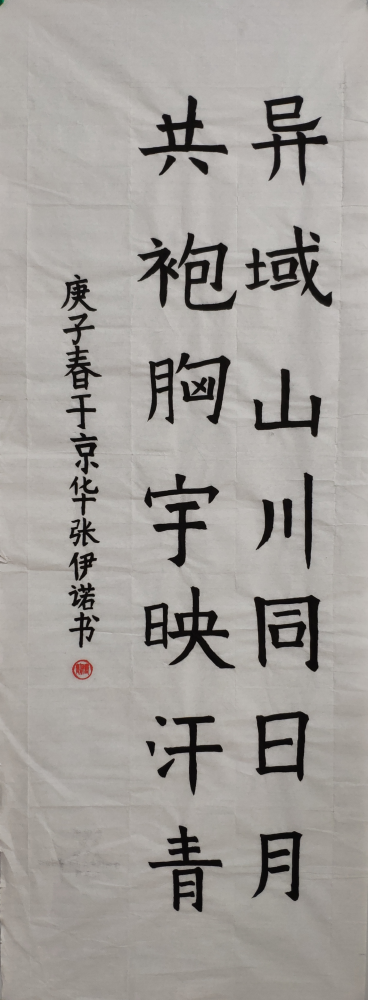 异域山川同日月
共袍胸宇映汗青
庚子春于京华张伊诺书